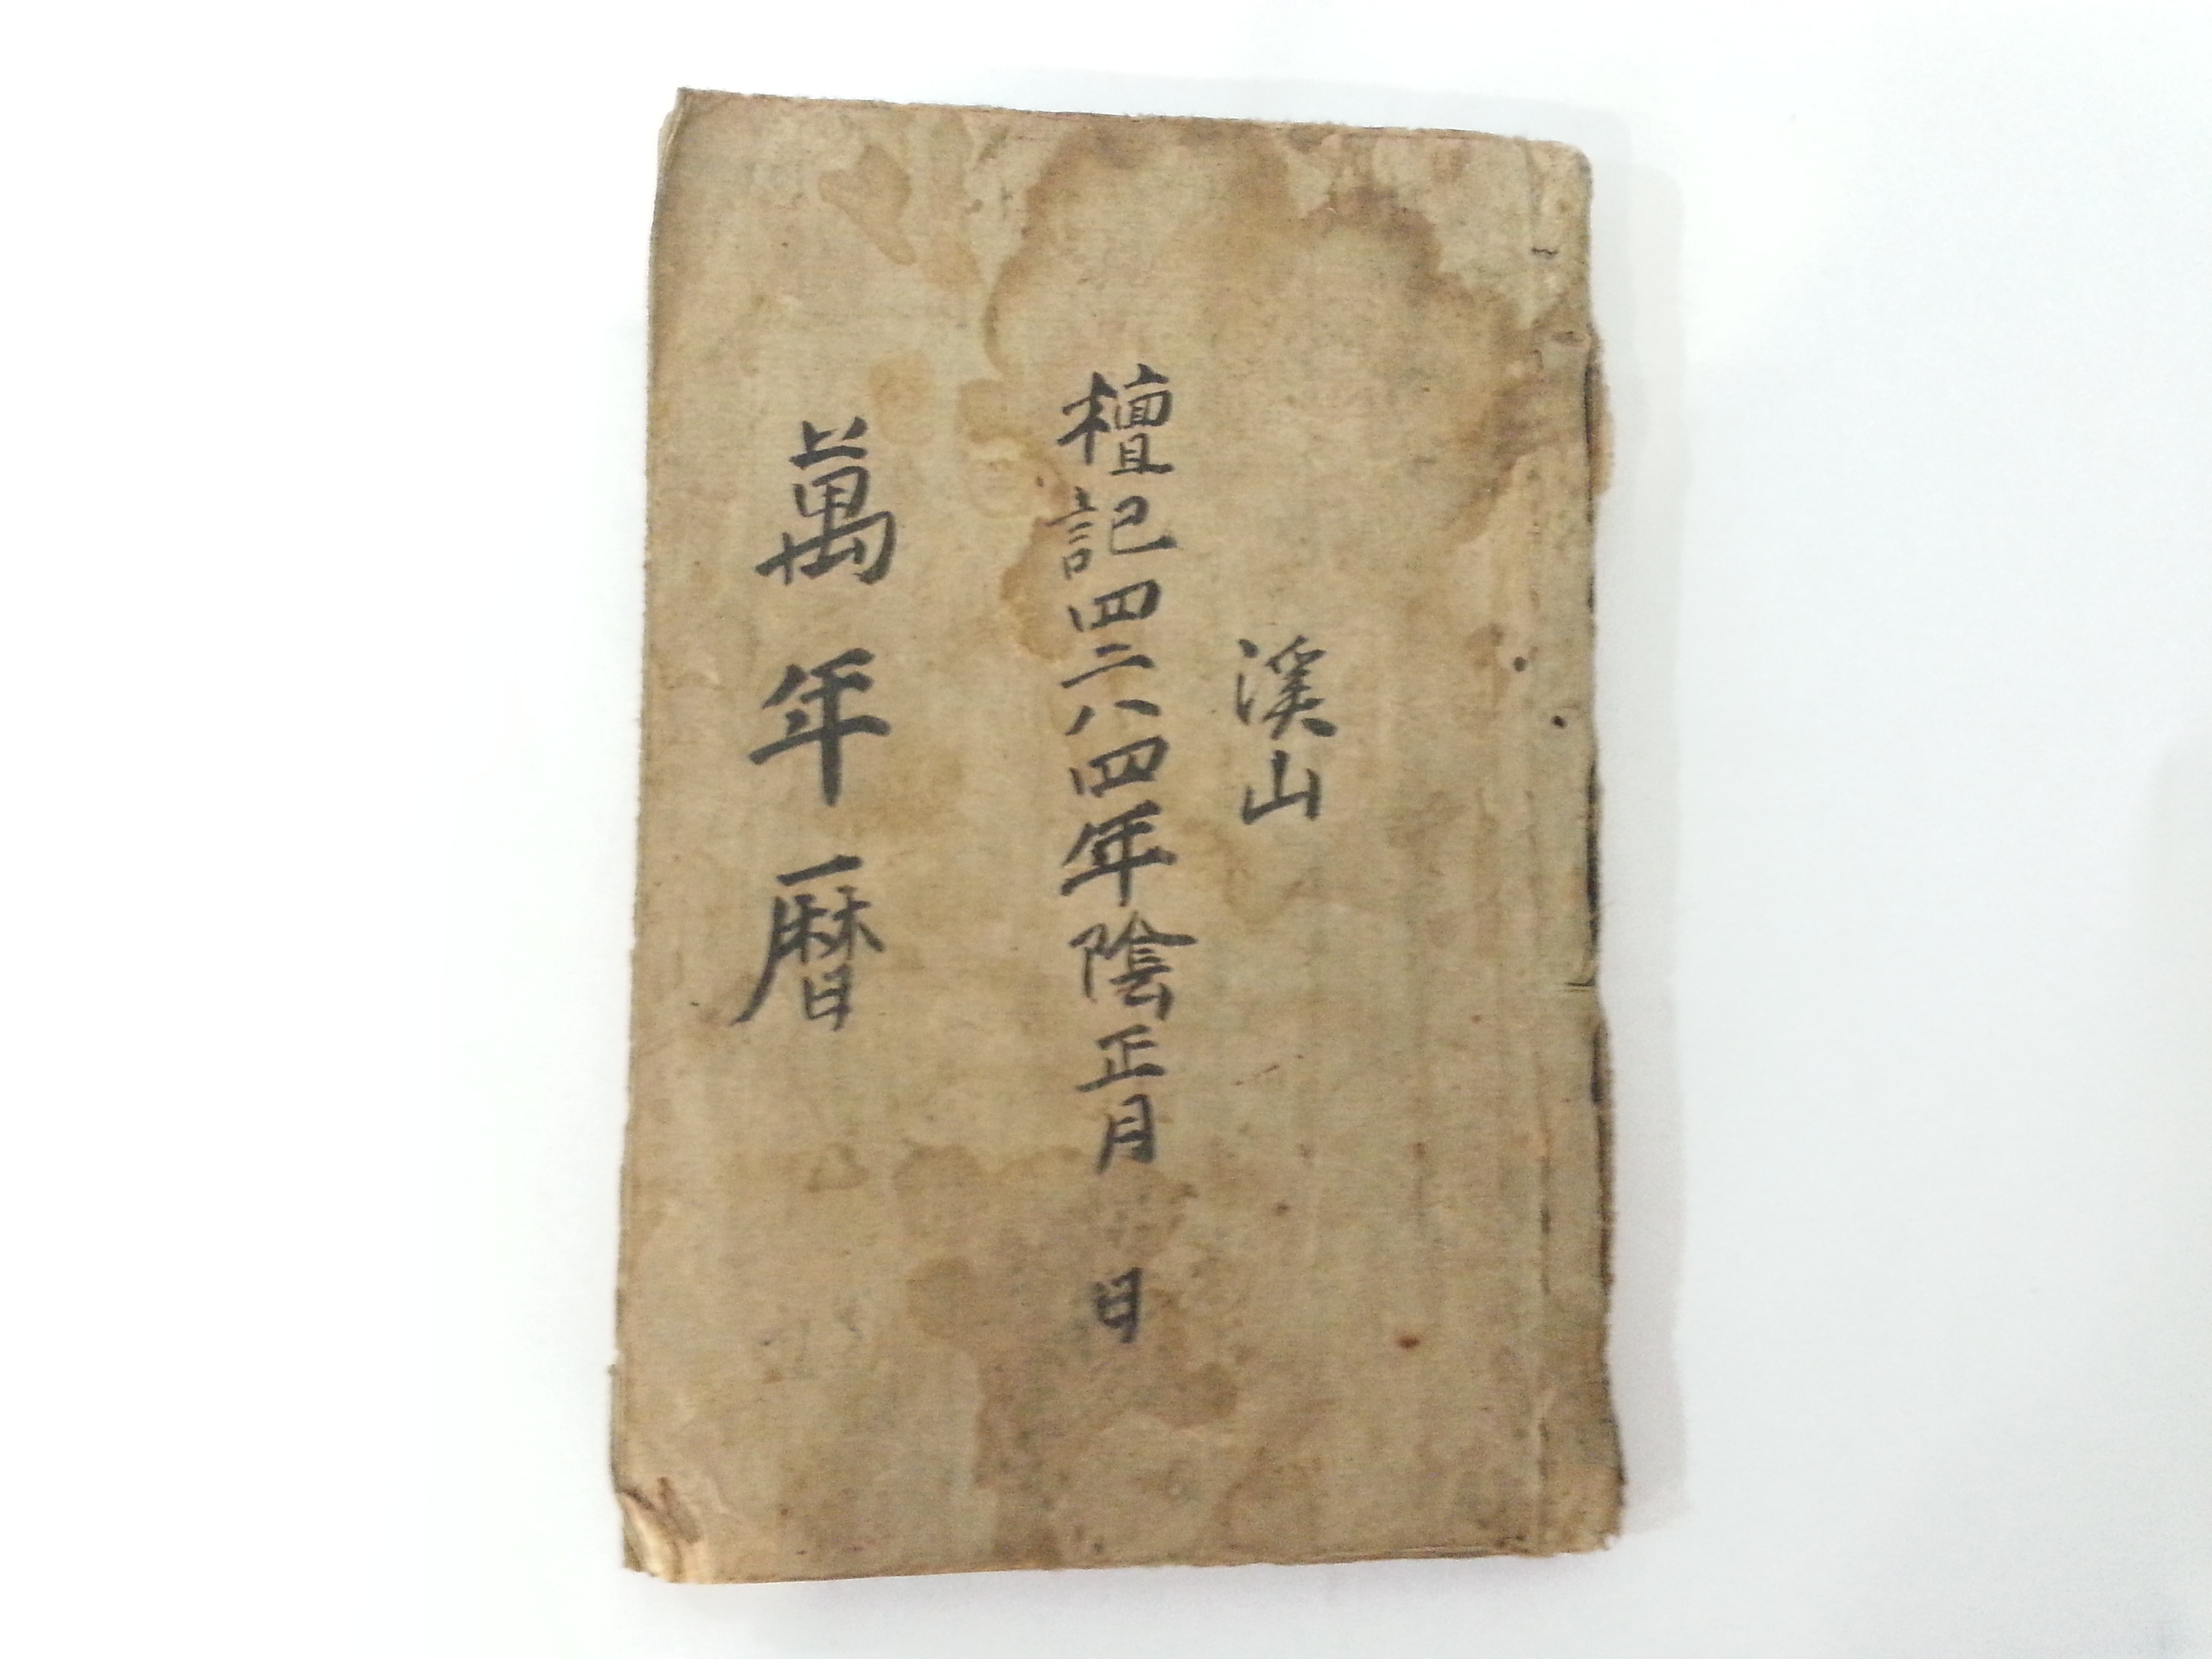 溪山
檀記四二八四年陰正月 日
萬年曆